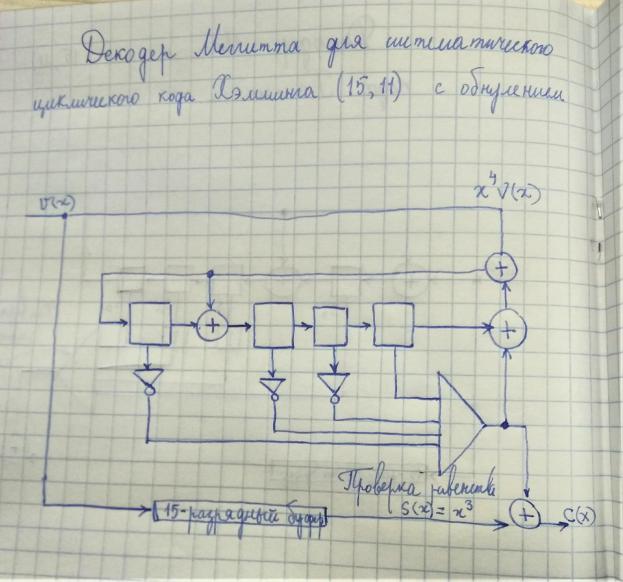 Декодер Меггитта для систематического
циклического кода Хэмминга (15,11) с обнулением
v(x)
x⁴v(x)
+
+
+
Проверка равенства
S(x) = x³
15-разрядный буфер
+
C(x)